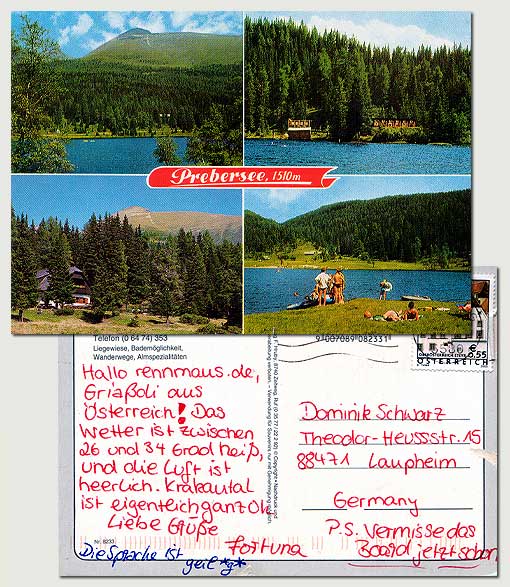 Prebersee, 1510m
Telefon (0 64 74) 353
Liegewiese, Bademöglichkeit,
Wanderwege, Almspezialitäten
9 007089 082331
0,55
ÖSTERREICH
Hallo rennmaus.de,
Griaßdi aus
Österreich! Das
Wetter ist zwischen
26 und 34 Grad heiß,
und die Luft ist
heerlich. Krakautal
ist eigentlich ganz Ok.
Liebe Grüße
Fortuna
Nr. 8233
Die Sprache ist
geil *g*
Dominik Schwarz
Theodor-Heussstr. 15
88471 Laupheim
Germany
P.S. Vermisse das
Board jetzt schon